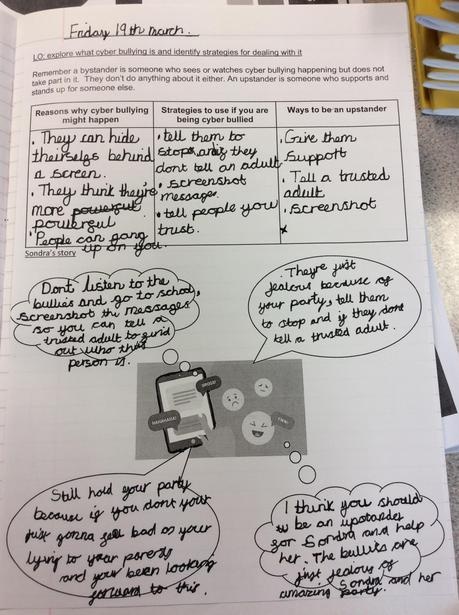 Friday 19th march.
LO: explore what cyber bullying is and identify strategies for dealing with it
Remember a bystander is someone who sees or watches cyber bullying happening but does not
take part in it. They don't do anything about it either. An upstander is someone who supports and
stands up for someone else.
Reasons why cyber bullying
might happen
. They can hide
theirselfs behind
a screen.
. They think they're
more powerful
powerful.
. People can gang
up on you.
Strategies to use if you are
being cyber bullied
. tell them to
stop and if they
dont tell an adult
. screenshot
message.
. tell people you
trust.
Ways to be an upstander
. Give them
support
. Tell a trusted
adult
. screenshot
Sondra's story
Dont listen to the
bullies and go to school,
screenshot the messages
so you can tell a
trusted adult to
out who this
person is.
. Theyre just
jealous because of
your party, tell them
to stop and if they dont
tell a trusted adult.
HAHAHAHA!
Still hold your party
because if you dont your
just gonna feel bad as your
lying to your parents
and your been looking
forward to this.
I think you should
be an upstander
for Sondra and help
her. The bullies are
just jealous of
Sondra and her
amazing party.